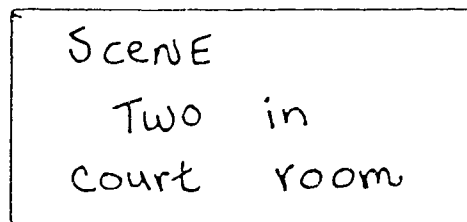 SceNE
Two in
court room